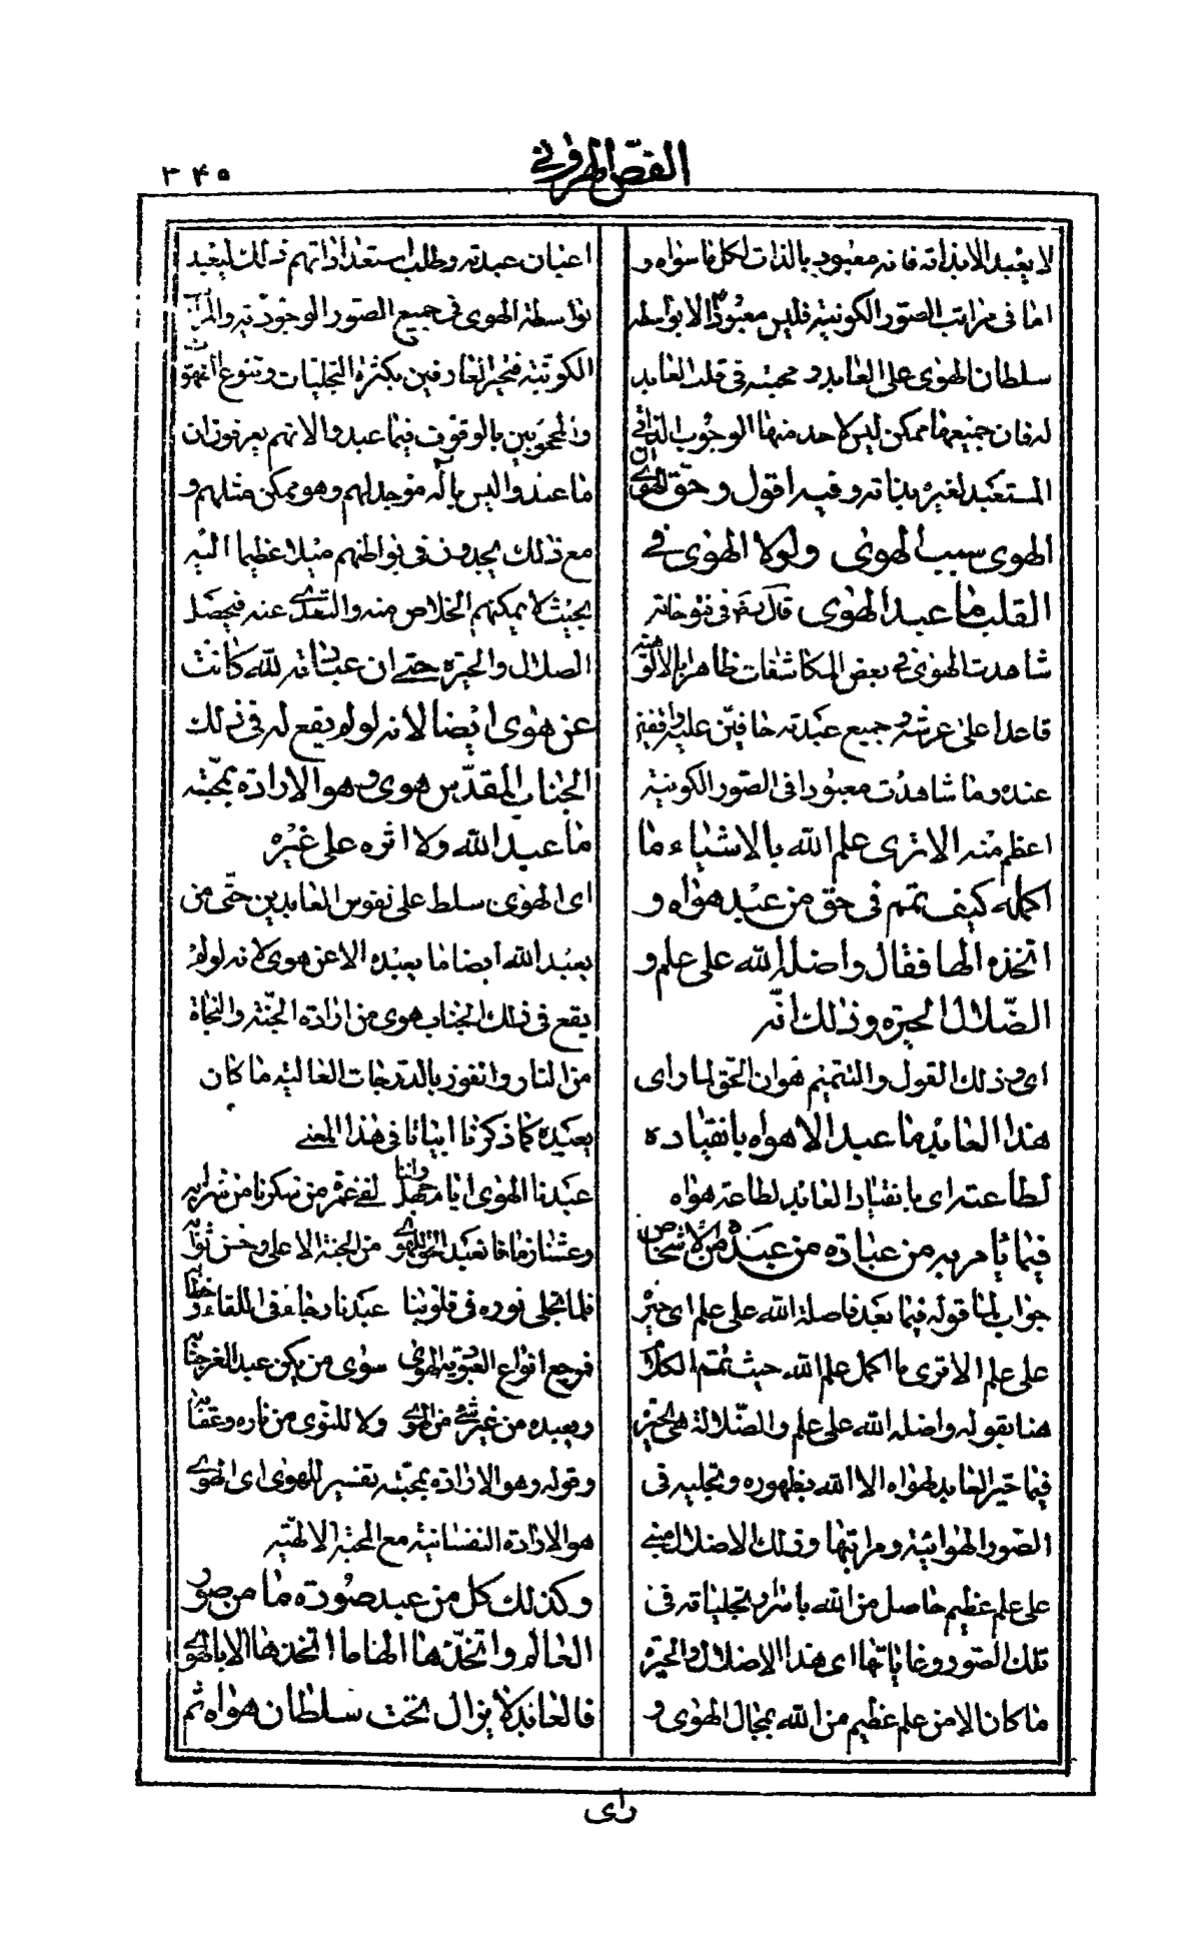 الفصّ الهرونی
۳۴۵
لا یعبد الا بذاته فانه معبود بالذات لکل ما سواه و
اما فی مراتب الصور الکونیة فلیس معبودا الا بواسطة
سلطان الهوی علی العابد و محبته فی قلب العابد
له فان جمیعها ممکن لیس لاحد منها الوجوب الذاتی
المستعبد لغیره بذاته وفیه اقول وحقّ الهوی ان
الهوی سبب الهوی ولولا الهوی فی
القلب ما عبد الهوی قال رضه فی فتوحاته
شاهدت الهوی فی بعض المکاشفات ظاهرا بالالوهیة
قاعدا علی عرشه وجمیع عبدته حافین علیه واقفین
عنده وما شاهدت معبودا فی الصور الکونیة
اعظم منه الا تری علم الله بالاشیاء ما
اکمله کیف تمم فی حق من عبد هواه و
اتخذه الها فقال واضله الله علی علم و
الضّلال الحیرة وذلک انّه
ای وذلک القول والتتمیم هو ان الحق لما رای
هذا العابد ما عبد الا هواه بانقیاده
لطاعته ای بانقیاد العابد لطاعة هواه
فیما یامر به من عبادة من عبده من الاشخاص
جواب لما قوله فیما بعد فاضله الله علی علم ای حیّر
علی علم الا تری ما اکمل علم الله حیث تمم الکلام
هنا بقوله واضله الله علی علم والضّلالة هی الحیرة
فیما حیر العابد لهواه الا الله بظهوره وتجلیه فی
الصور الهوائیة ومراتبها وذلک الاضلال مبنی
علی علم عظیم حاصل من الله باسرار تجلیاته فی
تلک الصور وغایاتها ای هذا الاضلال والحیرة
ما کان الا من علم عظیم من الله بمجال الهوی و
اعیان عبدته وطلب استعداداتهم ذلک لیعبد
بواسطة الهوی فی جمیع الصور الوجودیة والمراتب
الکونیة فتحیر العارفین بکثرة التجلیات وتنوع الظهورات
والمحجوبین بالوقوف فیما عبدوا لانهم یعرفون ان
ما عبدوا لیس باله موجد لهم وهو ممکن مثلهم و
مع ذلک یجدون فی بواطنهم میلا عظیما الیه
بحیث لا یمکنهم الخلاص منه والتعدی عنه فیحصل
الضلال والحیرة حتی ان عبادته لله کانت
عن هوی ایضا لانه لو لم یقع له فی ذلک
الجناب المقدّس هوی وهو الارادة بمحبّة
ما عبد الله ولا اثره علی غیره
ای الهوی سلط علی نفوس العابدین حتّی من
یعبد الله ایضا ما یعبده الا عن هوی لانه لو لم
یقع فی ذلک الجناب هوی من ارادة الجنّة والنجاة
من النار والفوز بالدرجات العالیة ما کان
یعبده کما ذکرنا ابیاتا فی هذا المعنی
عبدنا الهوی ایام جهل واننا لفی غمرة من سکرنا من شرابه
وعشنا زمانا نعبد الحق للهوی من الجنة الاعلی وحسن ثوابه
فلما تجلی نوره فی قلوبنا عبدنا رجاء فی اللقاء وخطابه
فمرجع انواع العبودیة الهوی سوی من یکن عبدا لعز جنابه
ویعبده من غیر شئ من الهوی ولا للنوی من ناره وعقابه
وقوله وهو الارادة بمحبّة تفسیر للهوی ای الهوی
هو الارادة النفسانیة مع المحبة الالهیة
وکذلک کل من عبد صورة ما من صور
العالم واتخذها الها ما اتخذها الا بالهوی
فالعابد لا یزال تحت سلطان هواه ثم
رای